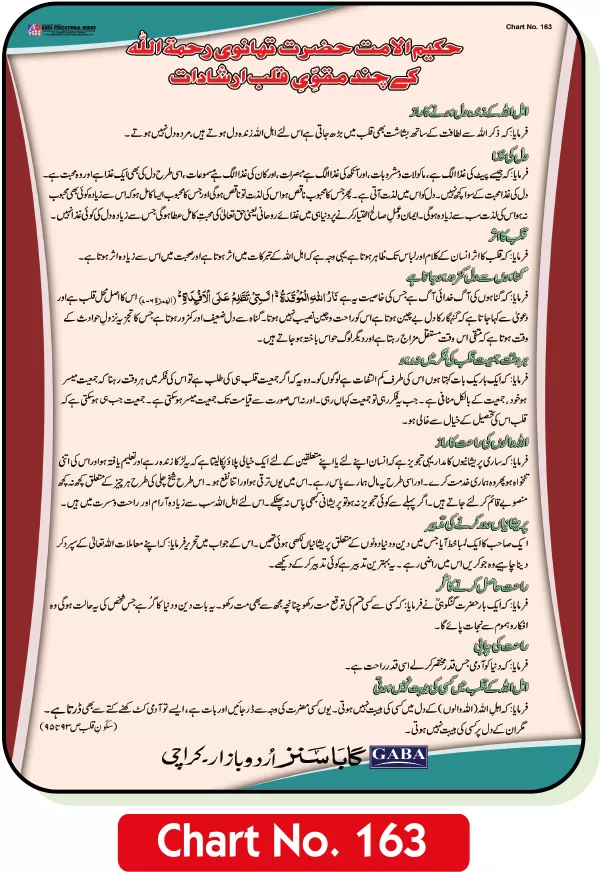 GABA EDUCATIONAL BOOKS
Chart No. 163
حکیم الامت حضرت تھانوی رحمۃ اللہ
کے چند مقوّیِ قلب ارشادات
اہل اللہ کے زندہ دل ہونے کا راز
فرمایا: کہ ذکر اللہ سے لطافت کے ساتھ بشاشت بھی قلب میں بڑھ جاتی ہے اس لئے اہل اللہ زندہ دل ہوتے ہیں، مردہ دل نہیں ہوتے۔
دل کی غذا
فرمایا: کہ جیسے پیٹ کی غذا الگ ہے، ماکولات و مشروبات، اور آنکھ کی غذا الگ ہے مبصرات، اور کان کی غذا الگ ہے مسموعات، اسی طرح دل کی بھی ایک غذا ہے اور وہ محبت ہے۔
دل کی غذا محبت کے سوا کچھ نہیں۔ دل کو اس میں لذت آتی ہے۔ پھر جس کا محبوب ناقص ہو اس کی لذت تو ناقص ہوگی اور جس کا محبوب ایسا کامل ہو کہ اس سے زیادہ کوئی بھی محبوب
نہ ہو اس کی لذت سب سے زیادہ ہوگی۔ ایمان و عمل صالح اختیار کرنے پر دنیا ہی میں غذائے روحانی یعنی حق تعالیٰ کی محبت کامل عطا ہوگی جس سے زیادہ دل کی کوئی غذا نہیں۔
قلب کا اثر
فرمایا: کہ قلب کا اثر انسان کے کلام اور لباس تک ظاہر ہوتا ہے یہی وجہ ہے کہ اہل اللہ کے تبرکات میں اثر ہوتا ہے اور صحبت میں اس سے زیادہ اثر ہوتا ہے۔
گناہوں سے دل کمزور ہو جاتا ہے
فرمایا: کہ گناہوں کی آگ خدائی آگ ہے جس کی خاصیت یہ ہے نَارُ اللهِ الْمُوْقَدَةُ الَّتِیْ تَطَّلِعُ عَلَی الْاَفْـِٕدَةِ (الھمزۃ ۶-۷) اس کا اصل محل قلب ہے اور
دعویٰ سے کہا جاتا ہے کہ گنہگار کا دل بے چین ہوتا ہے اس کو راحت و چین نصیب نہیں ہوتا۔ گناہ سے دل ضعیف اور کمزور ہوتا ہے جس کا تجزیہ نزول حوادث کے
وقت ہوتا ہے کہ متقی اس وقت مستقل مزاج رہتا ہے اور دیگر لوگ حواس باختہ ہو جاتے ہیں۔
ہر وقت جمعیت قلب کی فکر میں نہ رہو
فرمایا: کہ ایک باریک بات کہتا ہوں اس کی طرف کم التفات ہے لوگوں کو۔ وہ یہ کہ اگر جمعیت قلب ہی کی طلب ہے تو اس کی فکر میں ہر وقت رہنا کہ جمعیت میسر
ہو خود، جمعیت کے بالکل منافی ہے۔ جب یہ فکر رہی تو جمعیت کہاں رہی۔ اور نہ اس صورت سے قیامت تک جمعیت میسر ہو سکتی ہے۔ جمعیت جب ہی ہو سکتی ہے کہ
قلب اس کی تحصیل کے خیال سے خالی ہو۔
اللہ والوں کی راحت کا راز
فرمایا: کہ ساری پریشانیوں کا مدار یہی تجویز ہے کہ انسان اپنے لئے یا اپنے متعلقین کے لئے ایک خیالی پلاؤ پکا لیتا ہے کہ یہ لڑکا زندہ رہے اور تعلیم یافتہ ہو اور اس کی اتنی
تنخواہ ہو پھر وہ ہماری خدمت کرے۔ اور اسی طرح یہ مال ہمارے پاس رہے۔ اس میں یوں ترقی ہو اور اتنا نفع ہو۔ اس طرح شیخ چلی کی طرح ہر چیز کے متعلق کچھ نہ کچھ
منصوبے قائم کر لئے جاتے ہیں۔ اگر پہلے سے کوئی تجویز نہ ہو تو پریشانی کبھی پاس نہ پھٹکے۔ اس لئے اہل اللہ سب سے زیادہ آرام اور راحت و مسرت میں ہیں۔
پریشانیاں دور کرنے کی تدبیر
ایک صاحب کا ایک لمبا خط آیا جس میں دین و دنیا دونوں کے متعلق پریشانیاں لکھی ہوئی تھیں۔ اس کے جواب میں تحریر فرمایا: کہ اپنے معاملات اللہ تعالیٰ کے سپرد کر
دینا چاہیے وہ جو کریں اس میں راضی رہے۔ یہ بہترین تدبیر ہے کوئی تدبیر کر کے دیکھے۔
راحت حاصل کرنے کا گُر
فرمایا: کہ ایک بار حضرت گنگوہیؒ نے فرمایا: کہ کسی سے کسی قسم کی توقع مت رکھو چنانچہ مجھ سے بھی مت رکھو۔ یہ بات دین و دنیا کا گُر ہے جس شخص کی یہ حالت ہوگی وہ
افکار و ہموم سے نجات پائے گا۔
راحت کی چابی
فرمایا: کہ دنیا کو آدمی جس قدر مختصر کر لے اسی قدر راحت ہے۔
اہل اللہ کے قلب میں کسی کی ہیبت نہیں ہوتی
فرمایا: کہ اہل اللہ (اللہ والوں) کے دل میں کسی کی ہیبت نہیں ہوتی۔ یوں کسی مضرت کی وجہ سے ڈر جائیں اور بات ہے، ایسے تو آدمی کٹ کھنے کتے سے بھی ڈرتا ہے۔
مگر ان کے دل پر کسی کی ہیبت نہیں ہوتی۔ (سکونِ قلب ص ۹۳ تا ۹۵)
GABA گابا سنز اُردو بازار۔ کراچی
Chart No. 163